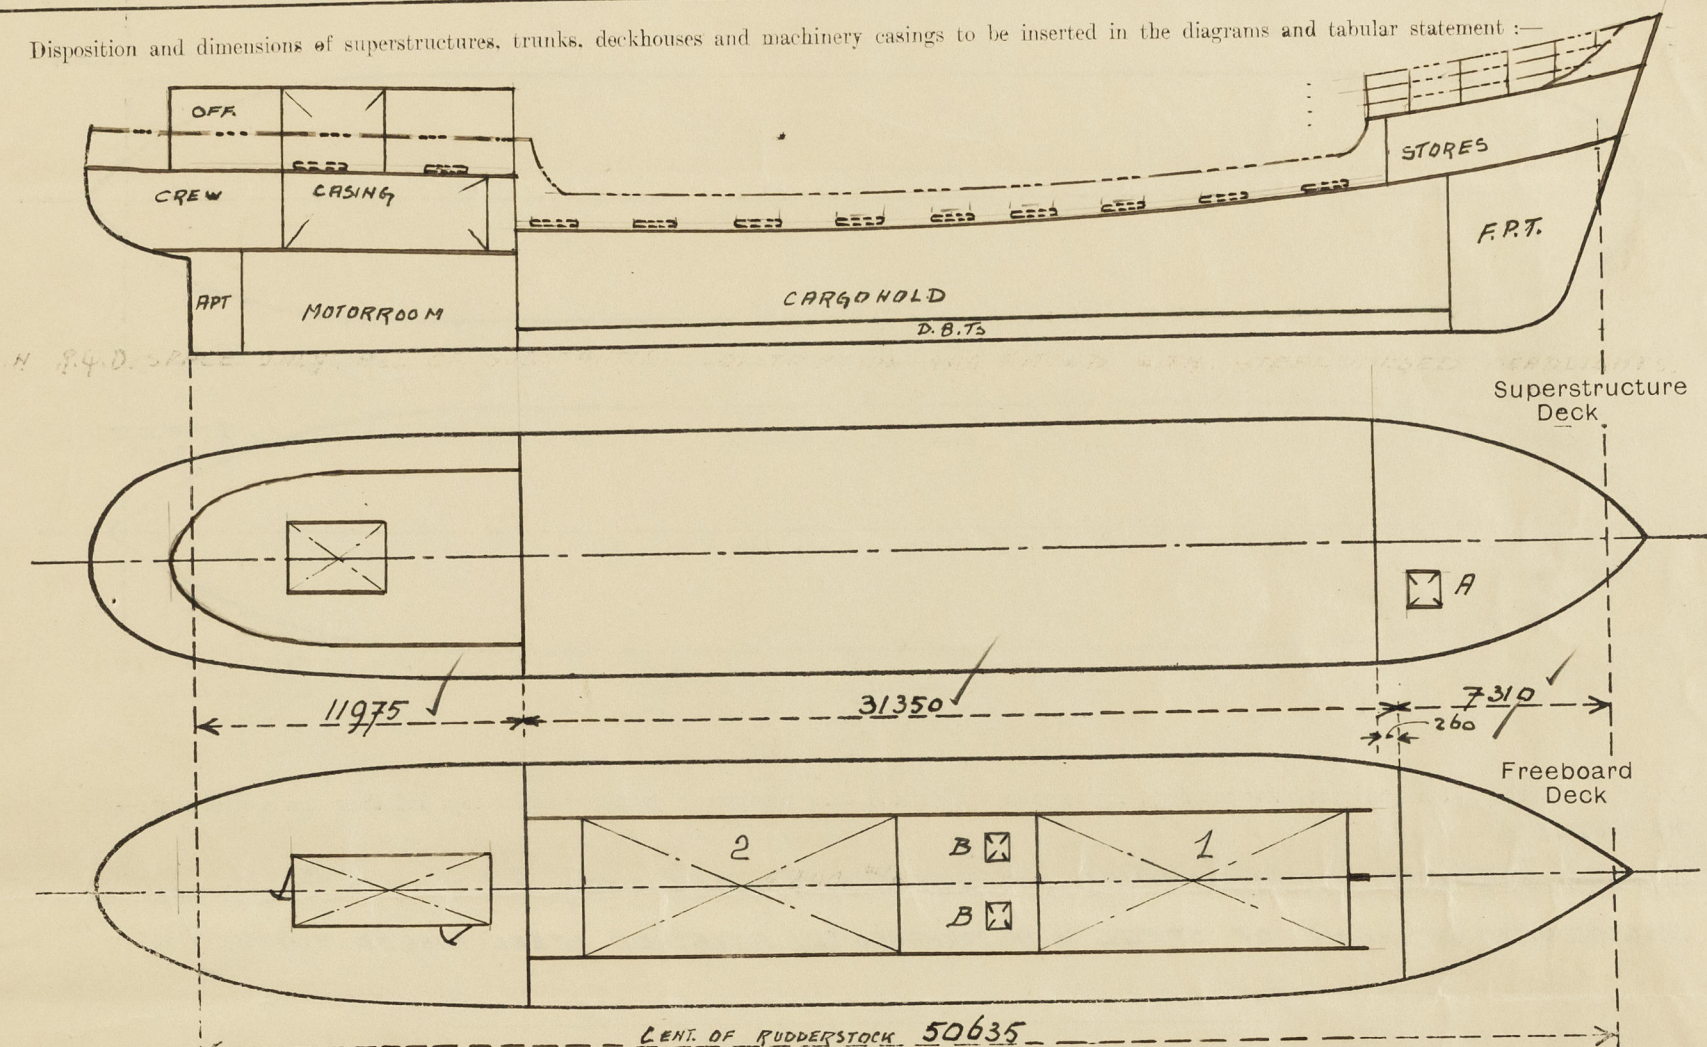 Disposition and dimensions of superstructures, trunks, deckhouses and machinery casings to be inserted in the diagrams and tabular statement :—
OFF.
STORES
CREW
CASING
F.P.T.
APT
MOTORROOM
CARGOHOLD
D.B.Ts
Superstructure
Deck
A
11975
31350
7310
260
Freeboard
Deck
2
B
1
B
CENT. OF RUDDERSTOCK 50635